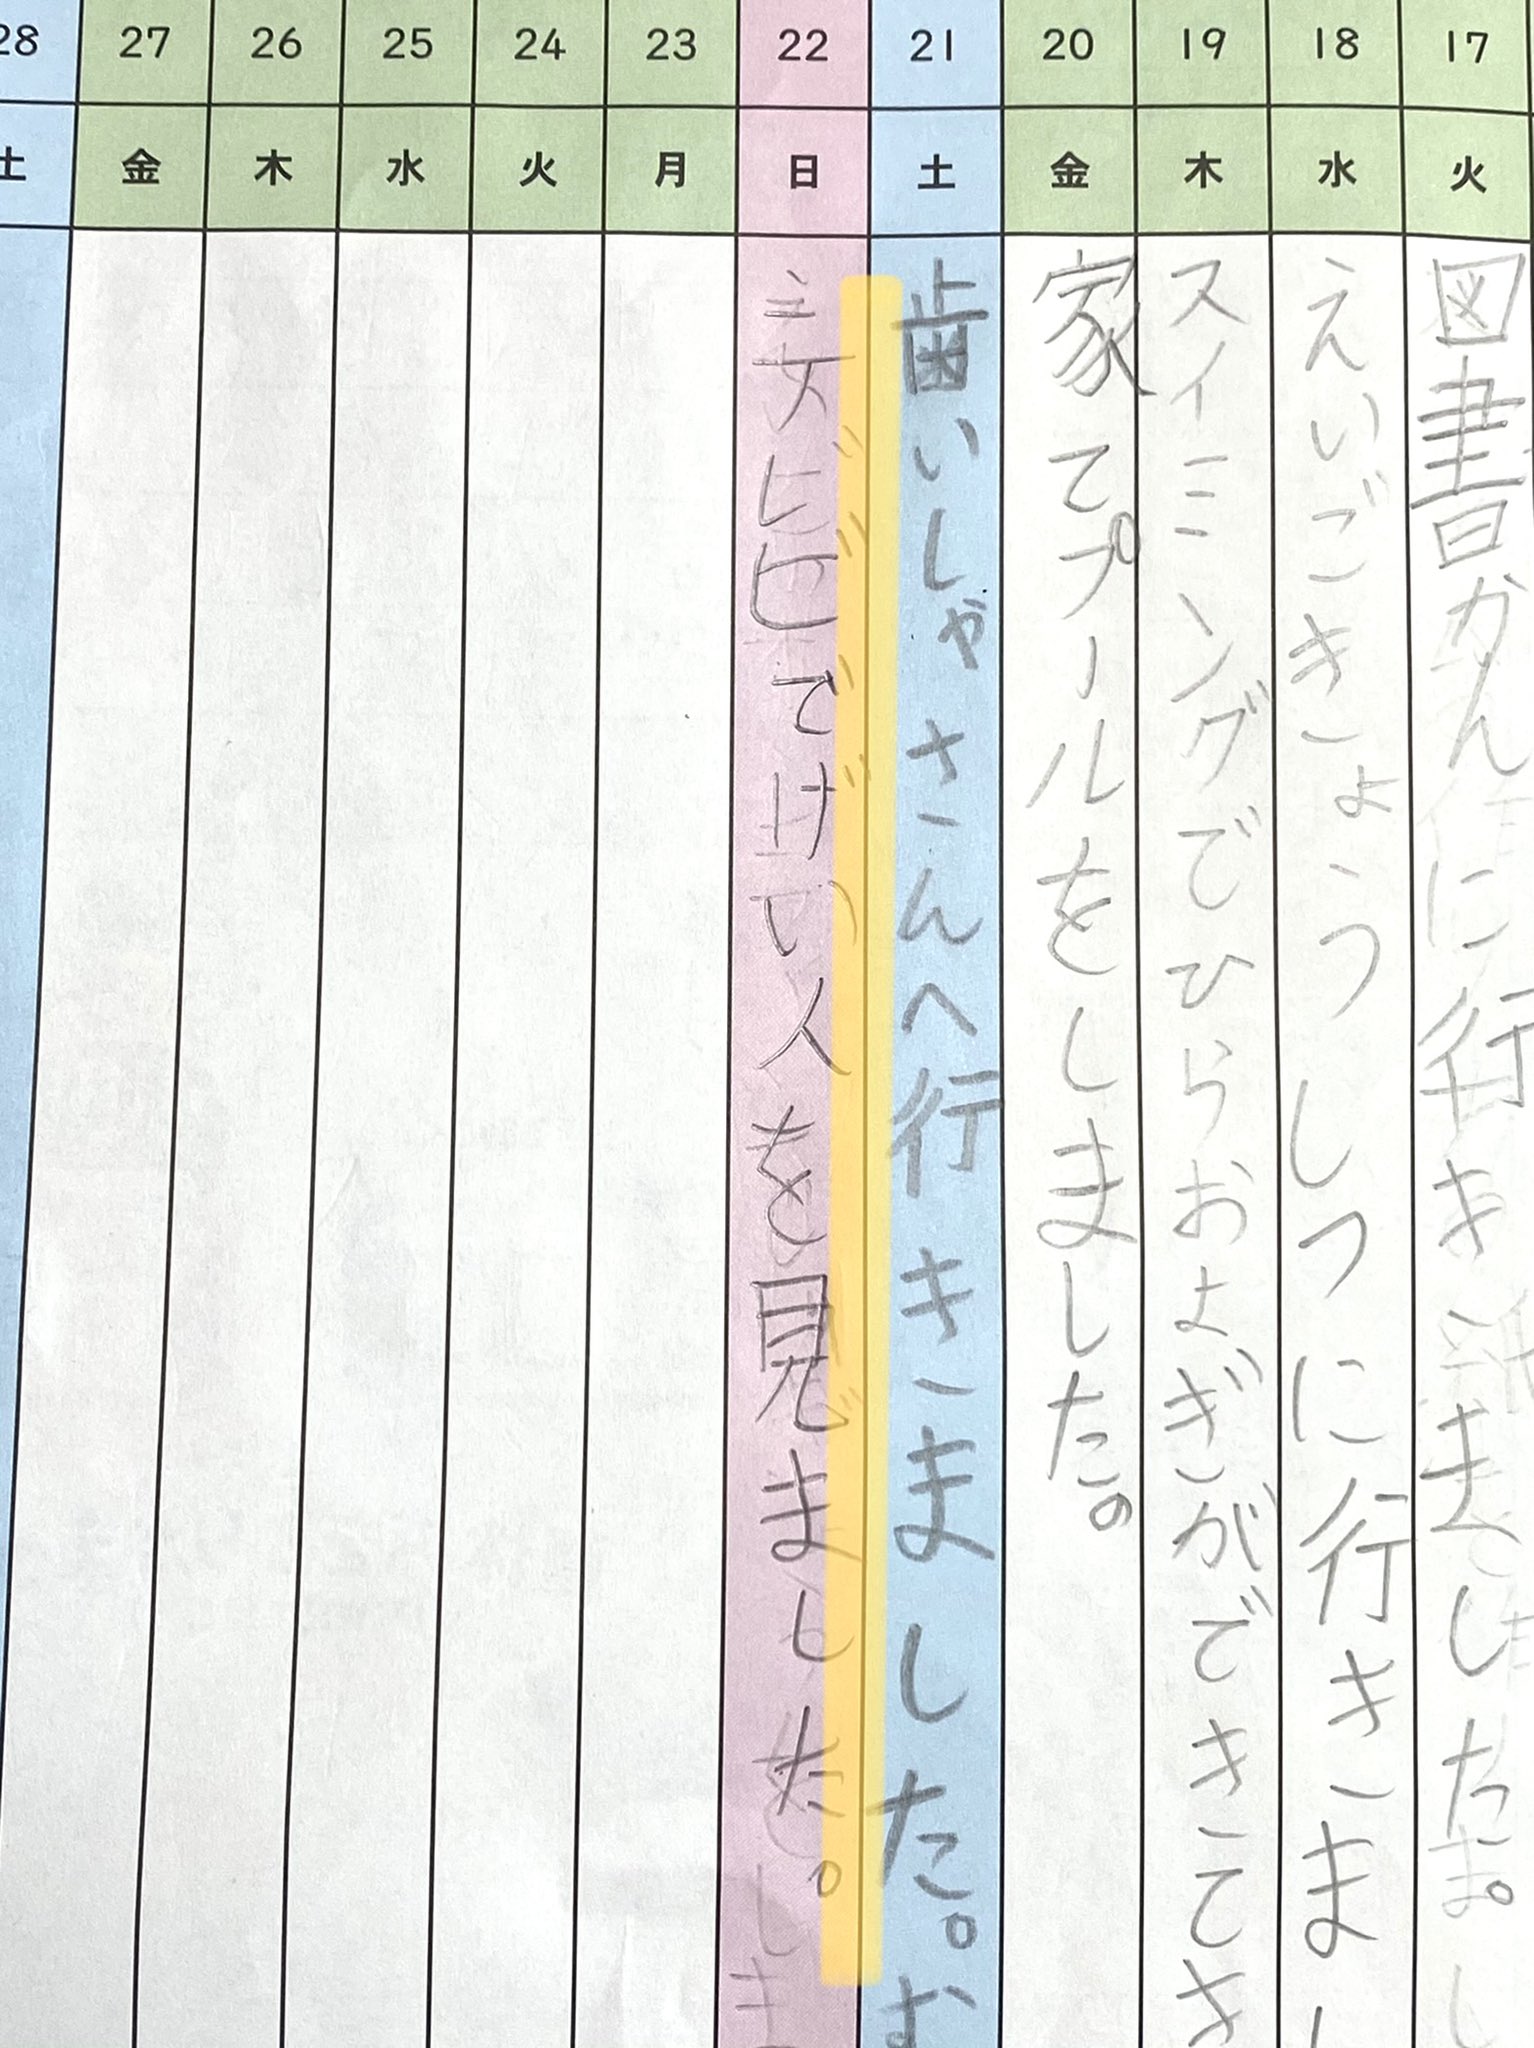 17
火
図書かんに行きました。
18
水
えいごきょうしつに行きまし
19
木
スイミングでひらおよぎができてき
20
金
家てプールをしました。
21
土
歯いしゃさんへ行きました。お
22
日
でげい人を見ました。
23
月
24
火
25
水
26
木
27
金
28
土